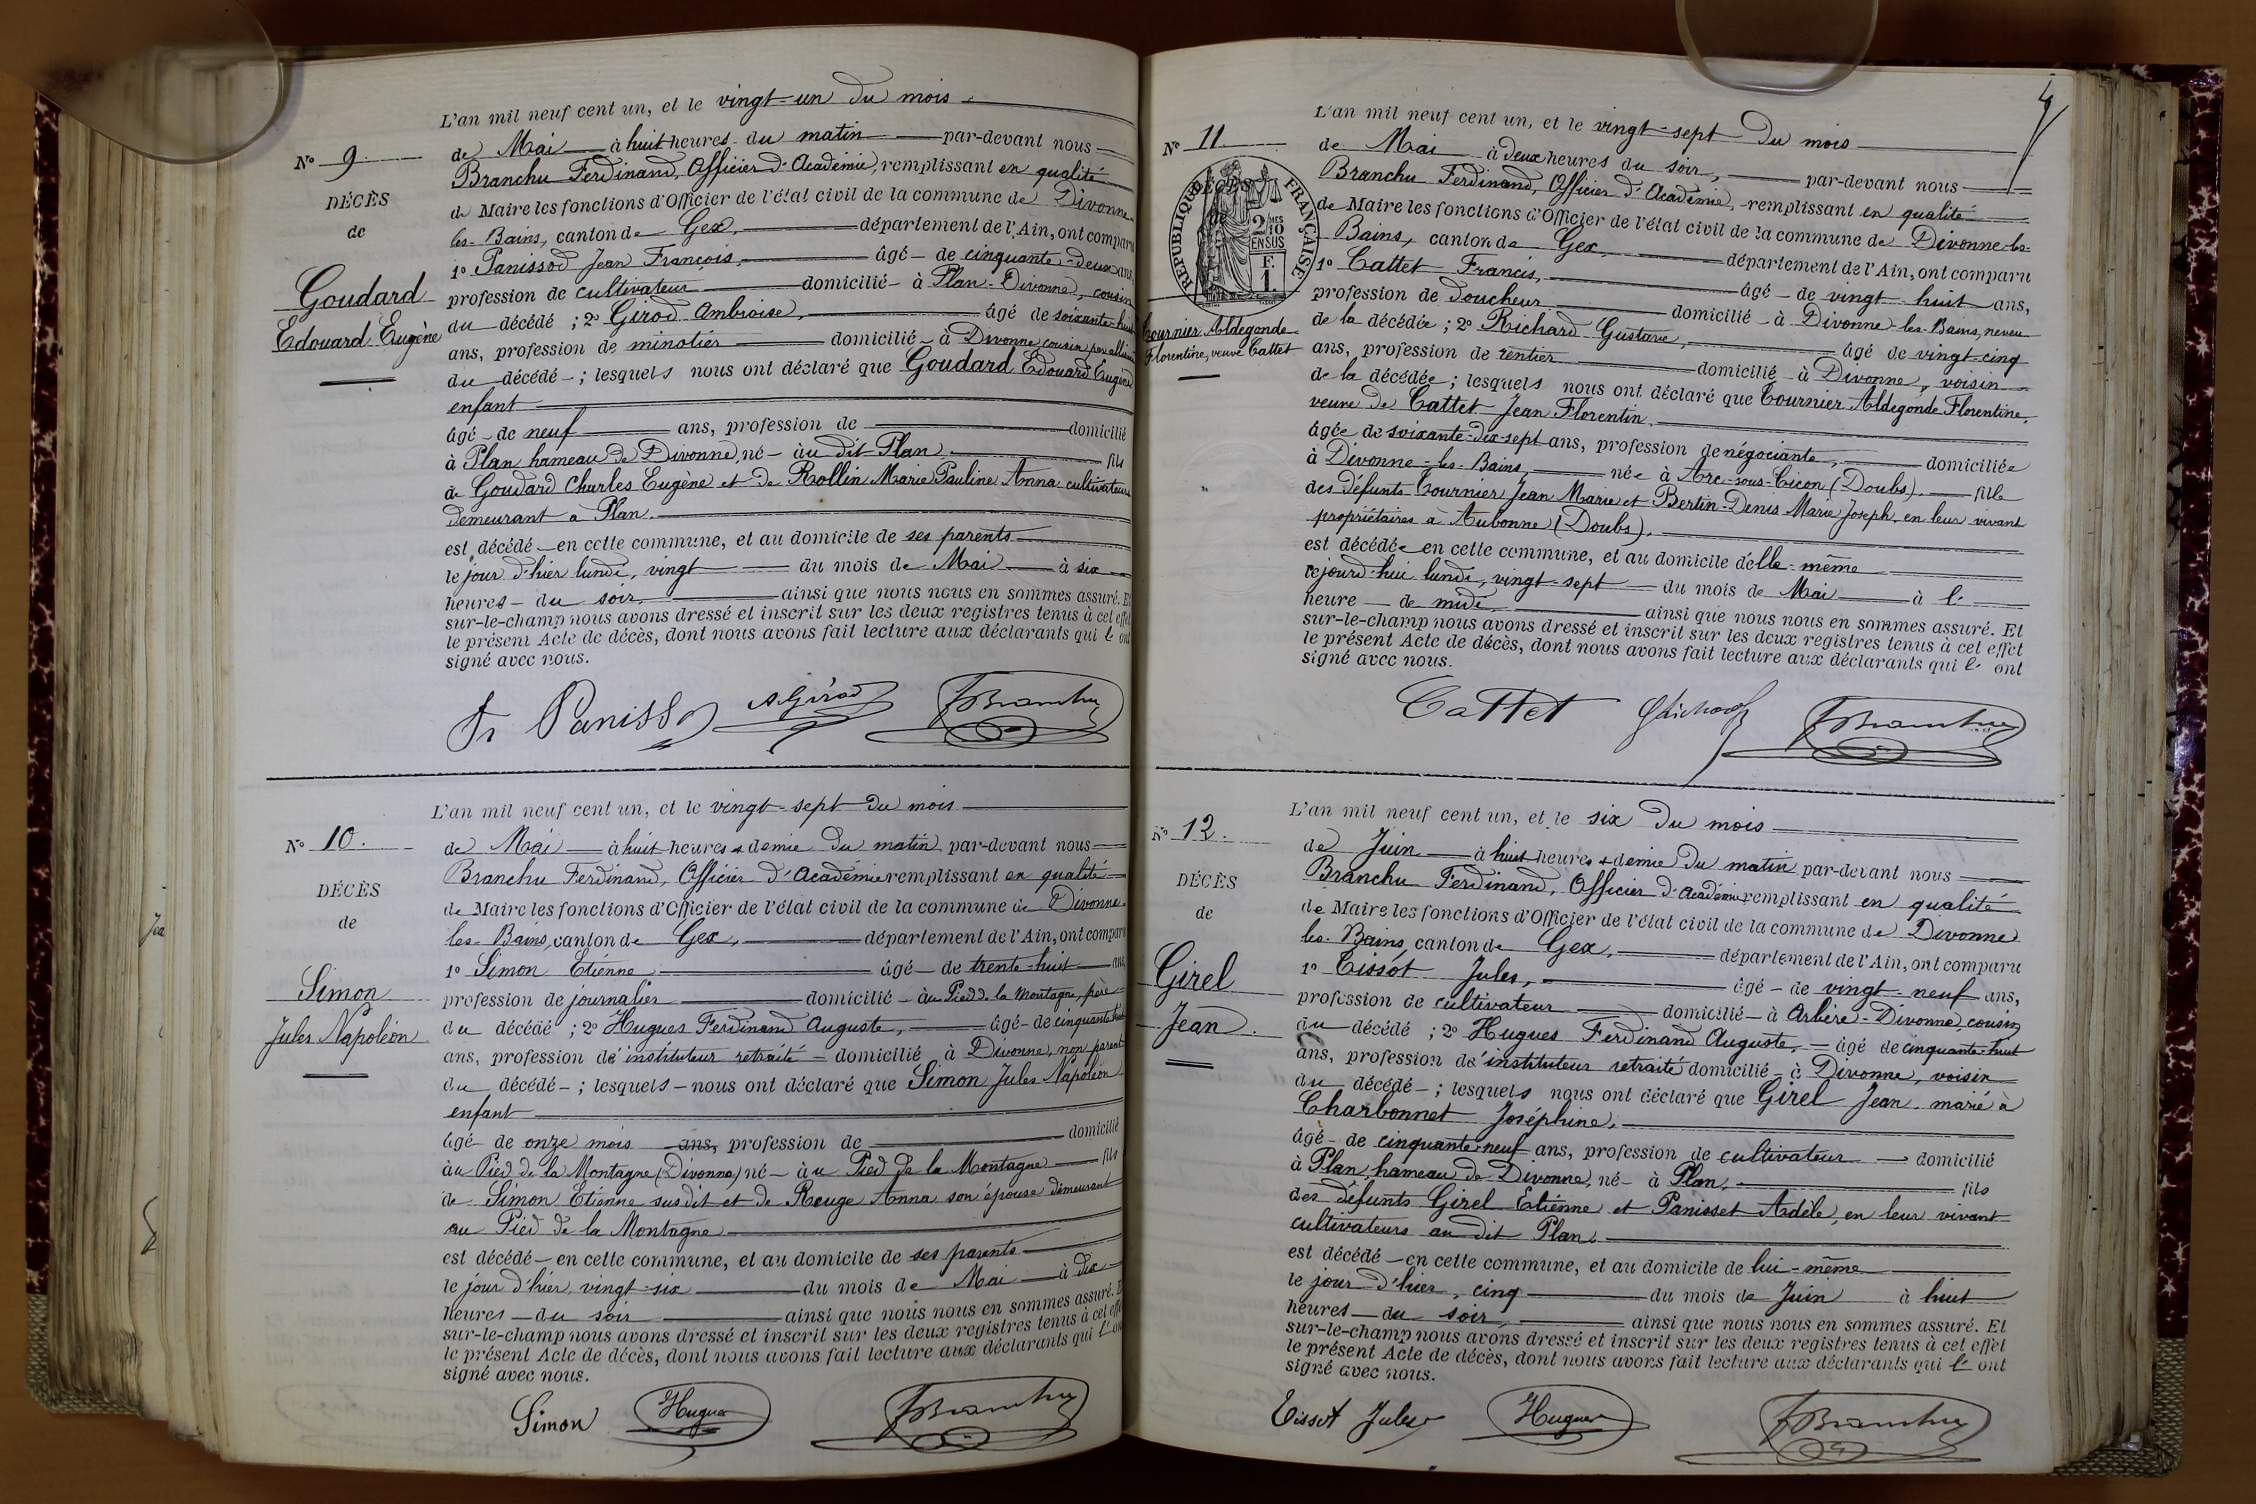 L'an mil neuf cent un, et le vingt-un du mois
N° 9.
de Mai à huit heures du matin par-devant nous
Branchu Ferdinand, Officier d'Académie, remplissant en qualité
DÉCÈS
de Maire les fonctions d'Officier de l'état civil de la commune de Divonne
de
les-Bains, canton de Gex, département de l'Ain, ont comparu
1° Panissod Jean François, âgé de cinquante-deux ans,
Goudard
profession de cultivateur domicilié à Plan-Divonne, cousin
Edouard Eugène
du décédé ; 2° Girod Ambroise, âgé de soixante-huit
ans, profession de minotier domicilié à Divonne cousin par alliance
du décédé ; lesquels nous ont déclaré que Goudard Edouard Eugène
enfant
âgé de neuf ans, profession de domicilié
à Plan hameau de Divonne, né au dit Plan fils
de Goudard Charles Eugène et de Rollin Marie Pauline Anna cultivateurs
demeurant à Plan.
est décédé en cette commune, et au domicile de ses parents
le jour d'hier lundi, vingt du mois de Mai à six
heures du soir, ainsi que nous nous en sommes assuré. Et
sur-le-champ nous avons dressé et inscrit sur les deux registres tenus à cet effet
le présent Acte de décès, dont nous avons fait lecture aux déclarants qui l' ont
signé avec nous.
Fs Panissod A. Girod FBranchu
L'an mil neuf cent un, et le vingt-sept du mois
N° 10.
de Mai à huit heures & demie du matin par-devant nous
Branchu Ferdinand, Officier d'Académie remplissant en qualité
DÉCÈS
de Maire les fonctions d'Officier de l'état civil de la commune de Divonne-
de
les-Bains, canton de Gex, département de l'Ain, ont comparu
1° Simon Etienne âgé de trente-huit ans,
Simon
profession de journalier domicilié au Pied de la Montagne, père
Jules Napoléon
du décédé ; 2° Hugues Ferdinand Auguste, âgé de cinquante huit
ans, profession d'instituteur retraité domicilié à Divonne, non parent
du décédé ; lesquels nous ont déclaré que Simon Jules Napoléon
enfant
âgé de onze mois ans, profession de domicilié
au Pied de la Montagne (Divonne) né au Pied de la Montagne fils
de Simon Etienne susdit et de Rouge Anna son épouse demeurant
au Pied de la Montagne
est décédé en cette commune, et au domicile de ses parents
le jour d'hier, vingt-six du mois de Mai à dix
heures du soir ainsi que nous nous en sommes assuré. Et
sur-le-champ nous avons dressé et inscrit sur les deux registres tenus à cet effet
le présent Acte de décès, dont nous avons fait lecture aux déclarants qui l' ont
signé avec nous.
Simon Hugues FBranchu
L'an mil neuf cent un, et le vingt-sept du mois
N° 11.
de Mai à deux heures du soir, par-devant nous
Branchu Ferdinand, Officier d'Académie, remplissant en qualité
RÉPUBLIQUE FRANÇAISE
DÉCÈS
2/10 MES
EN SUS
F.
1.
de Maire les fonctions d'Officier de l'état civil de la commune de Divonne-les-
Bains, canton de Gex, département de l'Ain, ont comparu
1° Cattet Francis, âgé de vingt-huit ans,
profession de doucheur domicilié à Divonne-les-Bains, neveu
Tournier Aldegonde
Florentine, veuve Cattet
de la décédée ; 2° Richard Gustave, âgé de vingt-cinq
ans, profession de rentier domicilié à Divonne, voisin
de la décédée ; lesquels nous ont déclaré que Tournier Aldegonde Florentine,
veuve de Cattet Jean Florentin,
âgée de soixante-dix-sept ans, profession de négociante, domiciliée
à Divonne-les-Bains, née à Arc-sous-Cicon (Doubs), fille
des défunts Tournier Jean Marie et Bertin-Denis Marie Joseph, en leur vivant
propriétaires à Aubonne (Doubs),
est décédée en cette commune, et au domicile d'elle-même
cejourd'hui lundi, vingt-sept du mois de Mai à l'
heure de midi, ainsi que nous nous en sommes assuré. Et
sur-le-champ nous avons dressé et inscrit sur les deux registres tenus à cet effet
le présent Acte de décès, dont nous avons fait lecture aux déclarants qui l' ont
signé avec nous.
Cattet GRichard FBranchu
L'an mil neuf cent un, et le six du mois
N° 12.
de Juin à huit heures & demie du matin par-devant nous
Branchu Ferdinand, Officier d'Académie remplissant en qualité
DÉCÈS
de Maire les fonctions d'Officier de l'état civil de la commune de Divonne
de
les-Bains, canton de Gex, département de l'Ain, ont comparu
1° Tissot Jules, âgé de vingt-neuf ans,
Girel
profession de cultivateur domicilié à Arbère-Divonne, cousin
Jean
du décédé ; 2° Hugues Ferdinand Auguste, âgé de cinquante-huit
ans, profession d'instituteur retraité domicilié à Divonne, voisin
du décédé ; lesquels nous ont déclaré que Girel Jean marié à
Charbonnet Joséphine,
âgé de cinquante-neuf ans, profession de cultivateur domicilié
à Plan, hameau de Divonne, né à Plan, fils
des défunts Girel Etienne et Panisset Adèle, en leur vivant
cultivateurs au dit Plan
est décédé en cette commune, et au domicile de lui-même
le jour d'hier, cinq du mois de Juin à huit
heures du soir, ainsi que nous nous en sommes assuré. Et
sur-le-champ nous avons dressé et inscrit sur les deux registres tenus à cet effet
le présent Acte de décès, dont nous avons fait lecture aux déclarants qui l' ont
signé avec nous.
Tissot Jules Hugues FBranchu